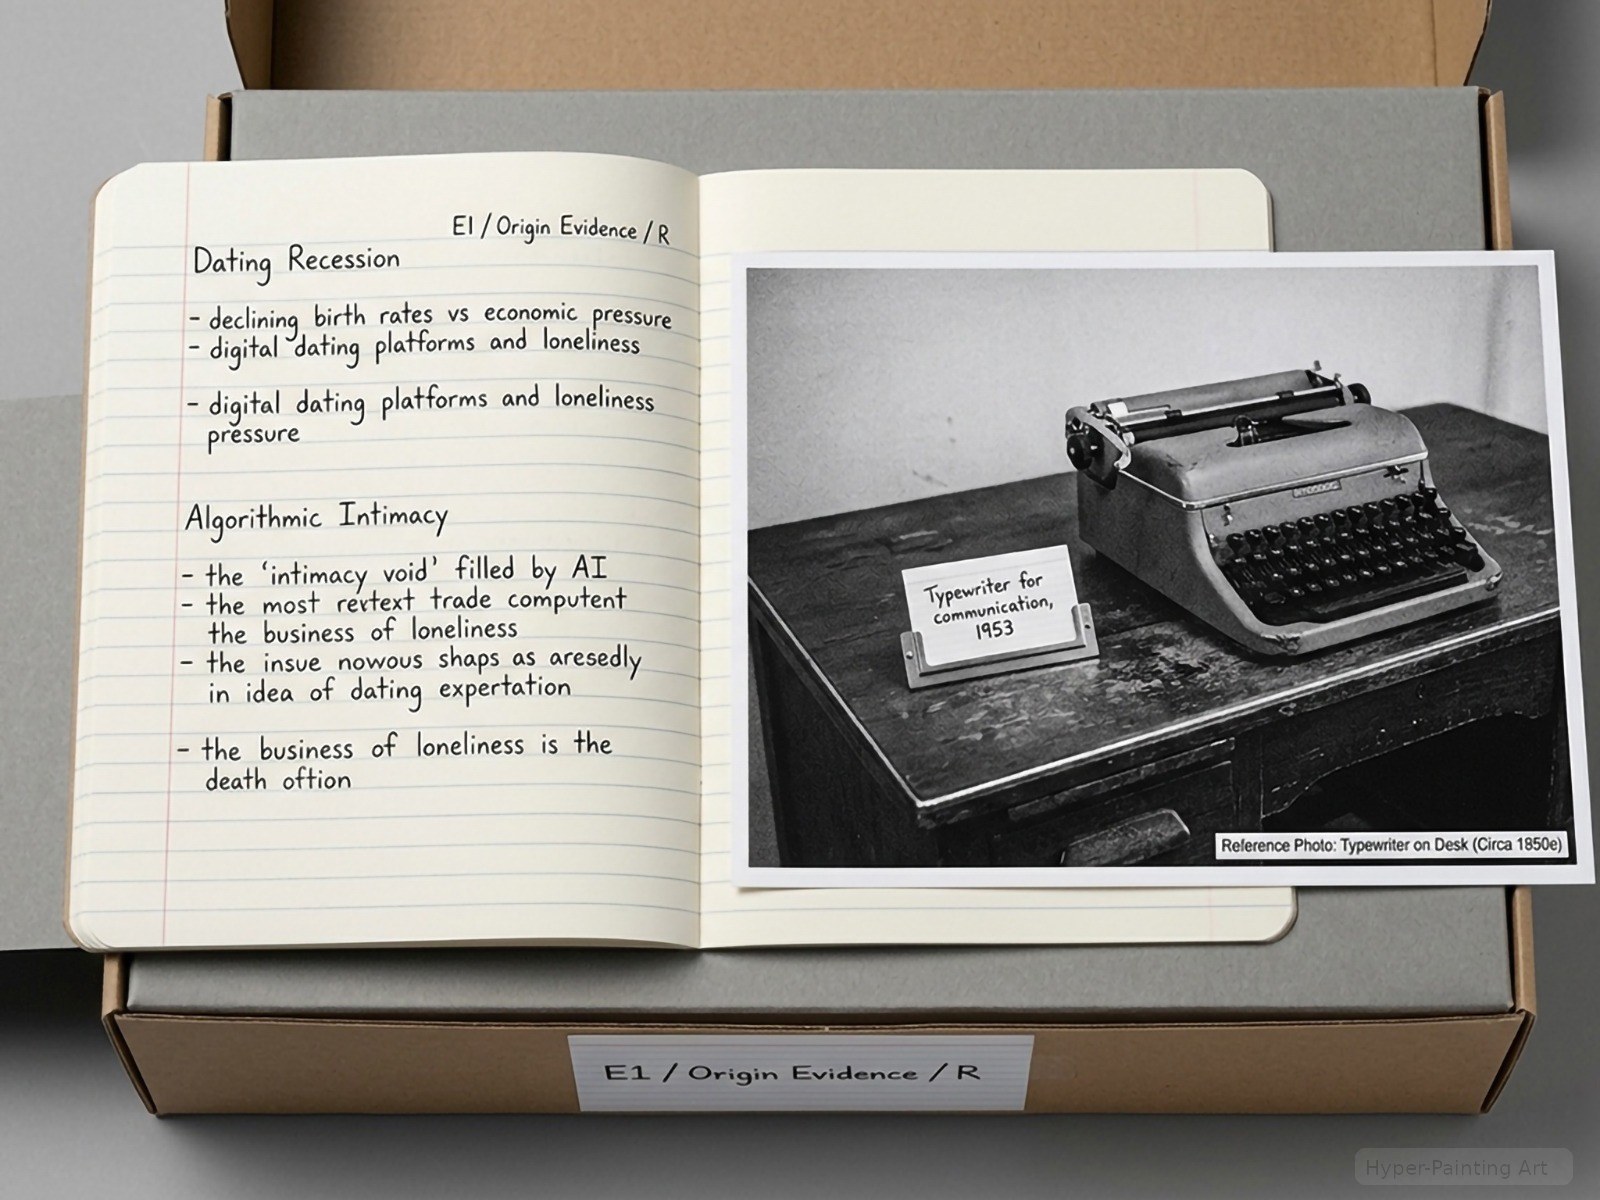 E1 / Origin Evidence / R
Dating Recession
- declining birth rates vs economic pressure
- digital dating platforms and loneliness
- digital dating platforms and loneliness
pressure
Algorithmic Intimacy
- the ‘intimacy void’ filled by AI
- the most revtext trade computent
the business of loneliness
- the insue nowous shaps as aresedly
in idea of dating expertation
- the business of loneliness is the
death oftion
Typewriter for
communication,
1953
Reference Photo: Typewriter on Desk (Circa 1850e)
E1 / Origin Evidence / R
Hyper-Painting Art